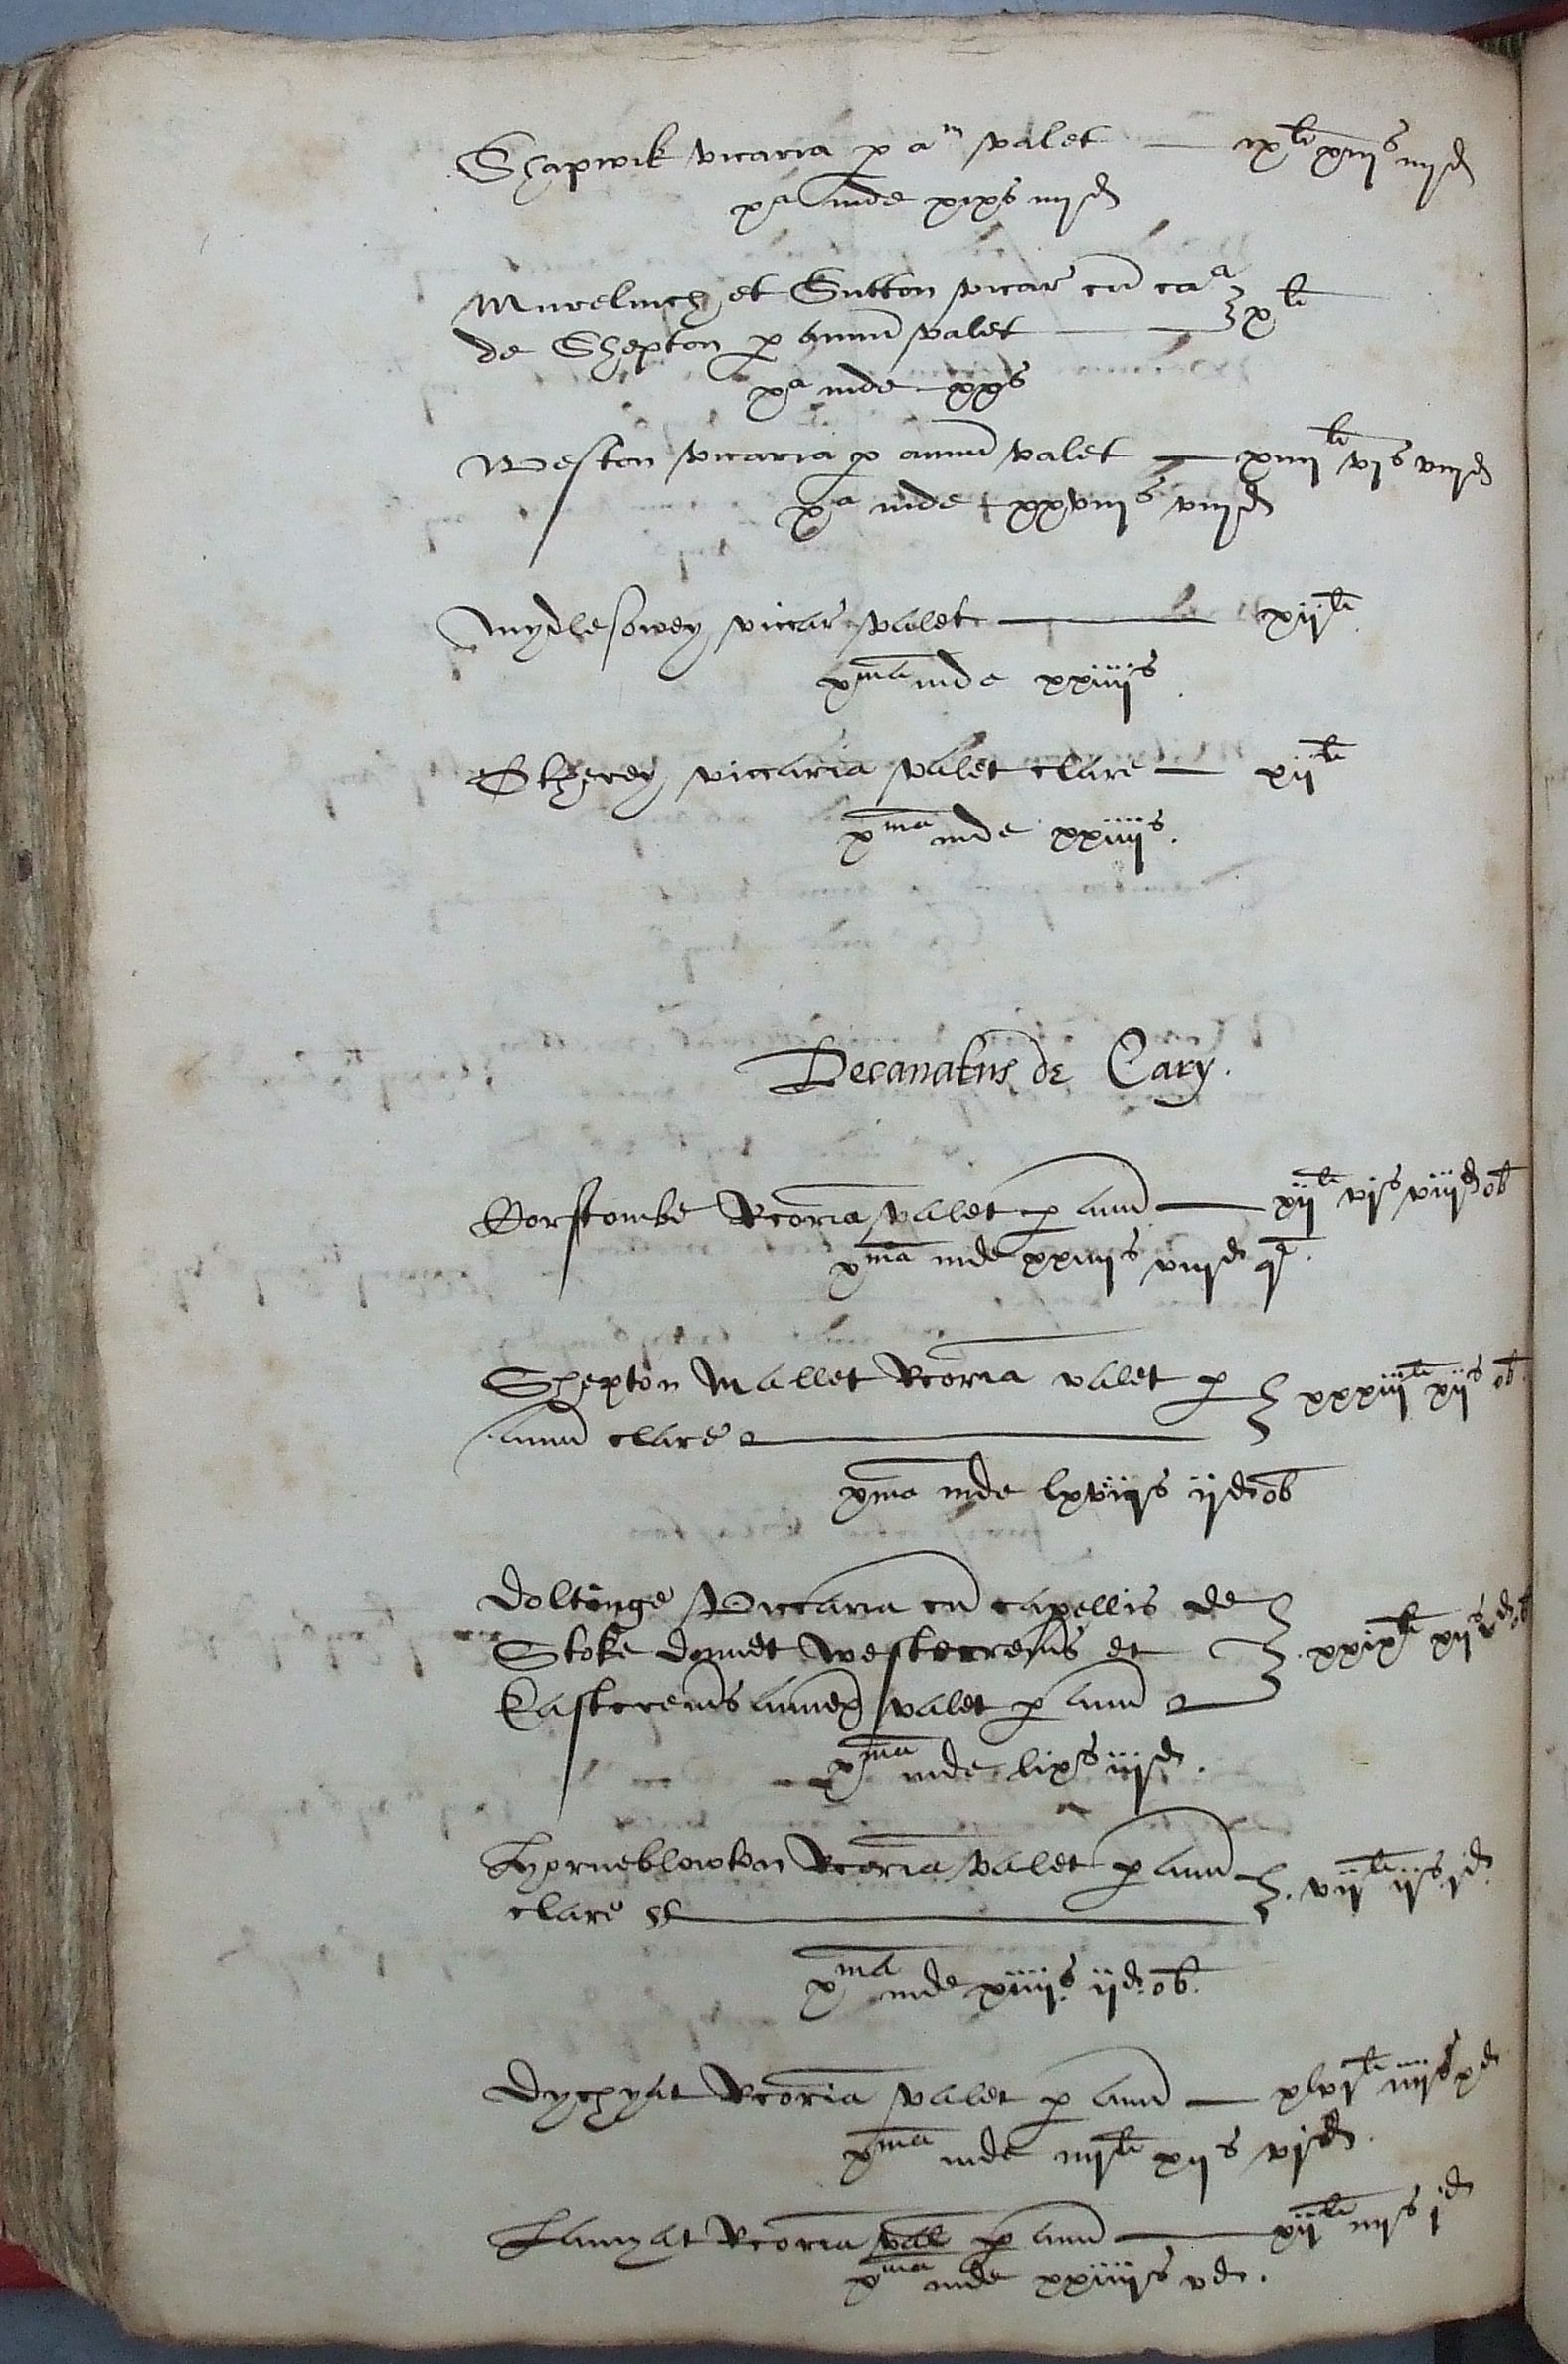 Shapwik vicaria p a^m valet — ix^li xiij^s iiij^d
x^a inde xixs iiij^d
Murelinch et Sutton vicar cu ca^a
de Shepton p annu valet — x^li
x^a inde xxs
Weston vicaria p annu valet — xiiij^li vj^s viij^d
x^a inde xxviij^s viij^d
Mydlesowey viccar valet — xij^li
x^ma inde xxiiij^s
Otherey viccaria valet clare — xij^li
x^ma inde xxiiij^s.
Decanatus de Cary.
Corscombe Rcoria valet p annu — xij^li vj^s viij^d ob
x^ma inde xxiiij^s viij^d q^a.
Shepton Mallet Rcoria valet p
annu clare — xxxiij^li xij^s ob
x^ma inde lxvijs ijd ob
Doltinge Viccaria cu capellis de
Stoke Downct westere
Estcrems annex valet p annu — xxix^li xij^s
x^ma inde lix^s iij^d.
Hyorneblowton Rcoria valet p annu
clare — vij^li ij^s j^d
x^ma inde xiiij^s ijd ob.
Dychyat Rcoria valet p annu — xlvj^li iiij^s x^d
x^ma inde iiij^li xij^s vj^d.
Lamyat Rcoria val p annu — xij^li iiij^s j^d
x^ma inde xxiiij^s vd.